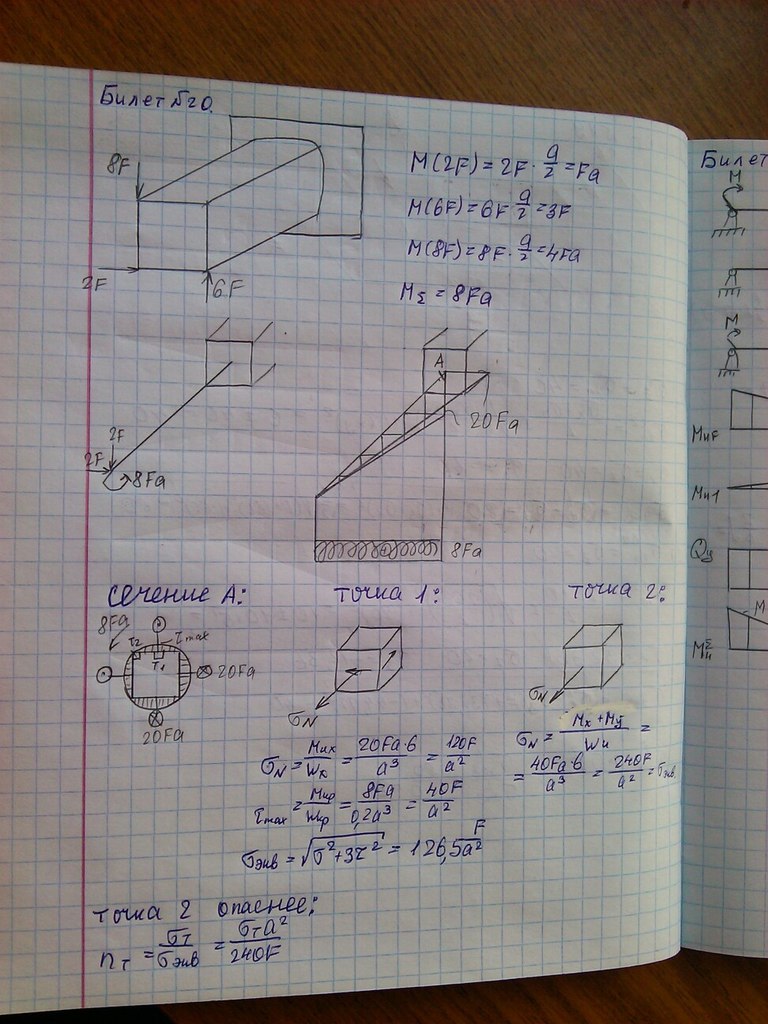 Билет №20.
8F
2F
6F
M(2F) = 2F · a/2 = Fa
M(6F) = 6F a/2 = 3F
M(8F) = 8F · a/2 = 4Fa
MΣ = 8Fa
2F
2F
8Fa
A
20Fa
8Fa
сечение А:
8Fa
τmax
т2
т1
20Fa
20Fa
точка 1:
σN
σN = Mих/Wх = 20Fa·6/a³ = 120F/a²
τmax = Mкр/Wкр = 8Fa/0,2a³ = 40F/a²
σэкв = √σ²+3τ² = 126,5 F/a²
точка 2:
σN
σN = Mx + My/Wи =
= 40Fa·6/a³ = 240F/a² = σэкв
точка 2 опаснее:
nт = σт/σэкв = σт a²/240F
Билет
M
M
MиF
Mи1
Qy
M
MиΣ